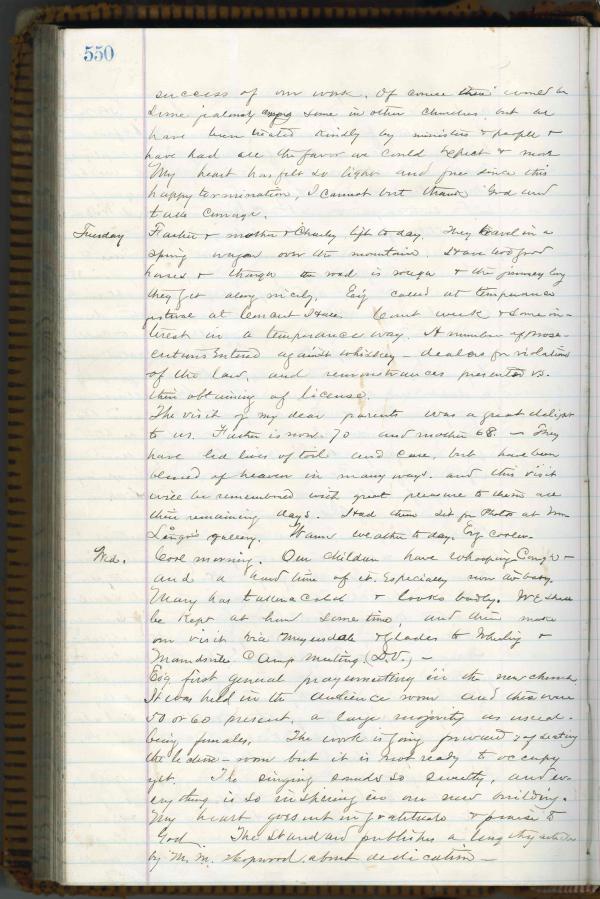 550
success of our work. Of course there would be
some jealousy among some in other churches, but we
have been treated kindly by ministers & people &
have had all the favor we could expect & more
My heart has felt so light and free since this
happy termination, I cannot but thank God and
take courage.
Tuesday Father & mother & Charley left to day. They travel in a
spring wagon over the mountain. Have two good
horses & though the road is rough & the journey long
they get along nicely. Evg called at temperance
at Court House. Court week & some in-
terest in a temperance way. A number of prose-
cutions entered against whiskey-dealers for violations
of the law, and remonstrances presented vs.
their obtaining of license.
The visit of my dear parents was a great delight
to us. Father is now 70 and mother 68. - They
have led lives of toil and care, but have been
blessed of heaven in many ways. and this visit
will be remembered with great pleasure to them all
their remaining days. Had them sit for Photo at Wm
gallery. Warm weather to day. Evg cooler.
Wed. Cool morning. Our children have whooping Cough -
and a hard time of it. Especially now the baby.
Mary has taken a cold & looks badly. We shall
be kept at home some time, and then make
our visit via Meyersdale & Glades to Wheeling &
Moundsville Camp Meeting. (D.V.) -
Evg first general prayermeeting in the new church
It was held in the audience room and there were
50 or 60 present, a large majority as usual
being females. The work is going forward of seating
the lecture-room but it is not ready to occupy
yet. The singing sounds so sweetly, and ev-
erything is so inspiring in our new building.
My heart goes out in gratitude & praise to
God. The Standard publishes a lengthy article
by M. M. Hopwood about dedication -